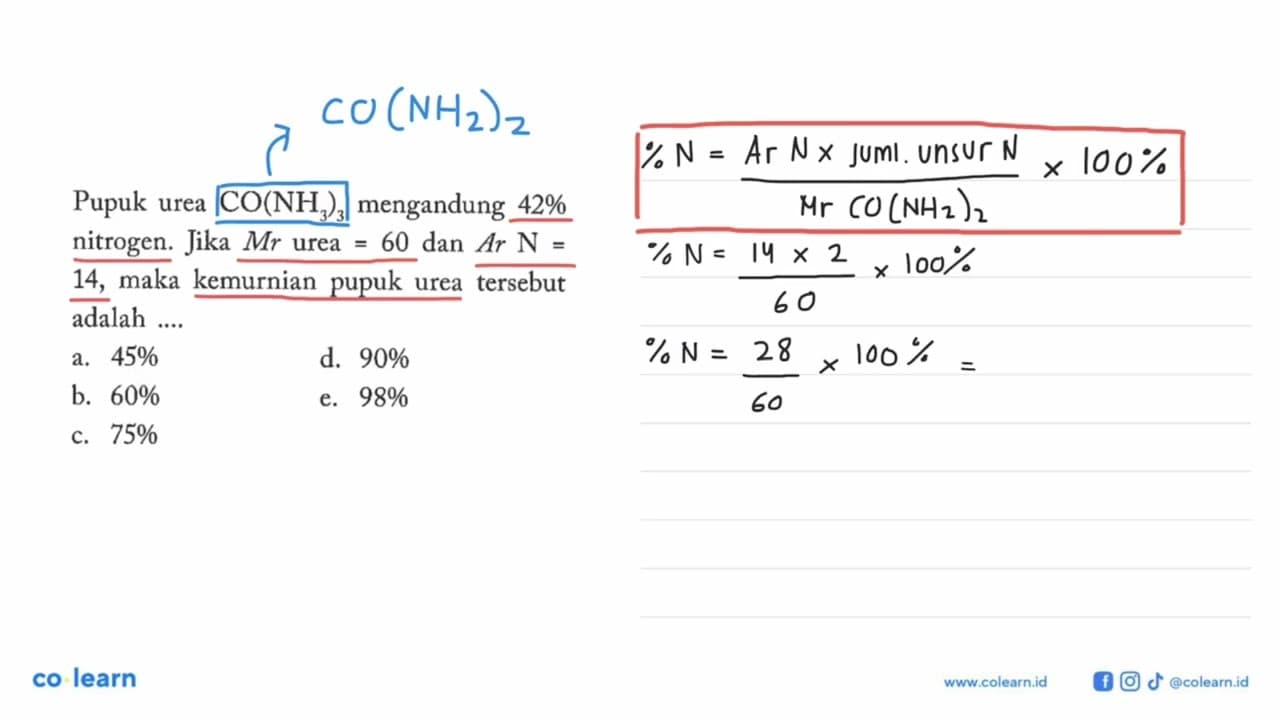 CO(NH₂)₂
Pupuk urea CO(NH₃)₃ mengandung 42%
nitrogen. Jika Mr urea = 60 dan Ar N =
14, maka kemurnian pupuk urea tersebut
adalah ....
a. 45%
b. 60%
c. 75%
d. 90%
e. 98%
% N = Ar N x juml. unsur N x 100%
Mr CO(NH₂)₂
% N = 14 x 2 x 100%
60
% N = 28 x 100% =
60
co learn
www.colearn.id
@colearn.id